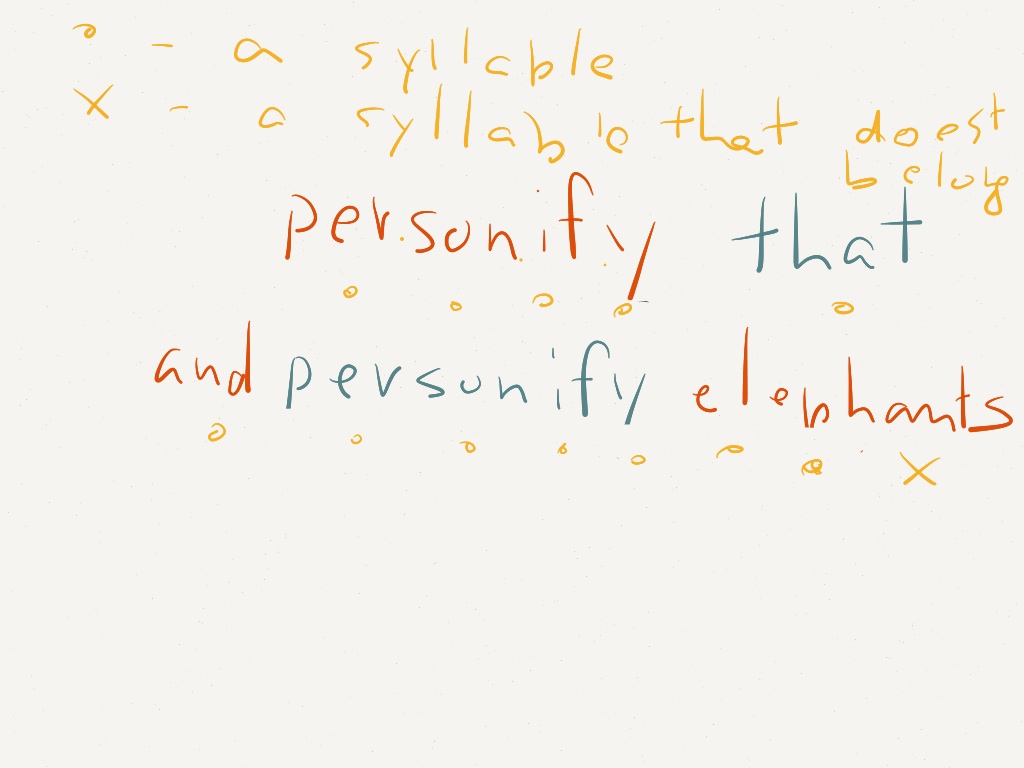 o - a syllable
x - a syllable that doest belong
personify that
and personify elephants